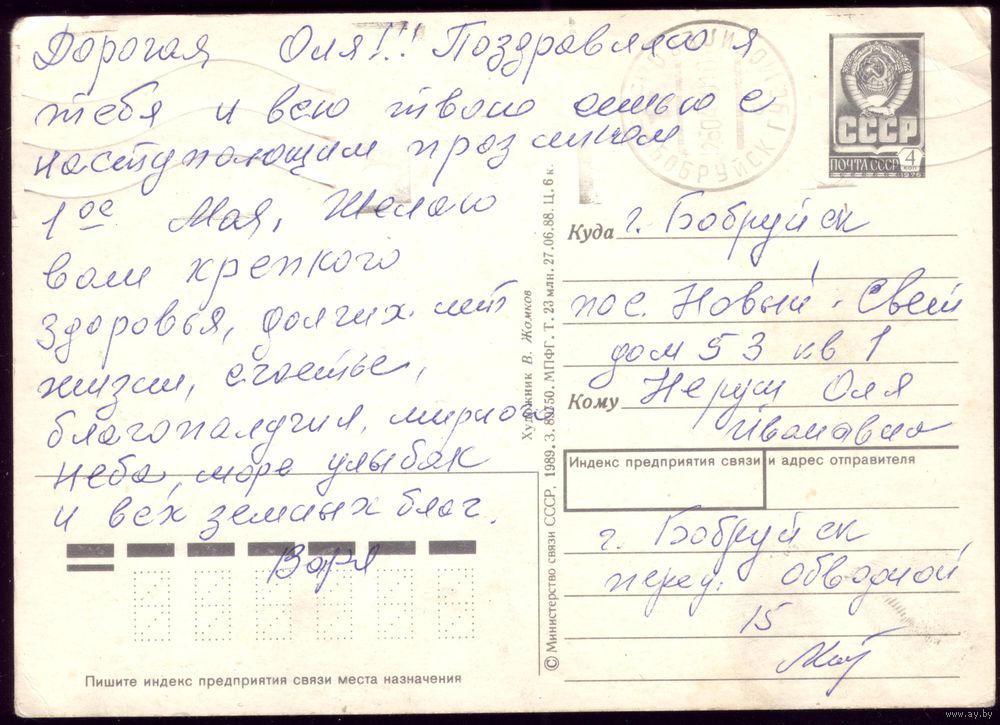 Дорогая Оля!!! Поздравляю я
тебя и всю твою семью с
наступающим праздником
1ое Мая, Желаю
вам крепкого
здоровья, долгих лет
жизни, счастье,
благополучия, мирного
неба, море улыбак
и всех земных благ.
Варя
Пишите индекс предприятия связи места назначения
© Министерство связи СССР, 1989. З. 89250. МПФГ. Т. 23 млн. 27.06.88. Ц. 6 к.
Художник В. Жамков
БОБРУЙСК
СССР
ПОЧТА СССР 4 КОП
1976
Куда г. Бобруйск
пос. Новый. Свет
дом 53 кв 1
Кому Неруш Оля
Ивановна
Индекс предприятия связи и адрес отправителя
г. Бобруйск
перед. Обводной
15
www.ay.by